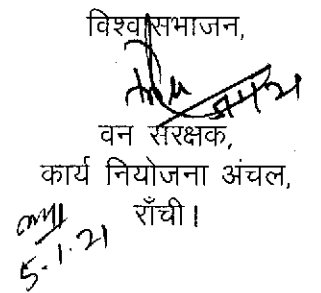 विश्वासभाजन,
वन संरक्षक,
कार्य नियोजना अंचल,
राँची।
5.1.21